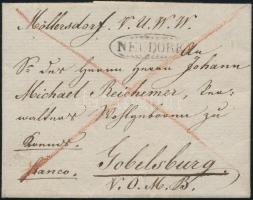 Möllersdorf V. U. W. W.
NEUDORF
An
Sr. des Herrn Herrn Johann
Michael Reichimer, Ver-
walters Wohlgeboren zu
Krems.
Franco. Gobelsburg.
V. O. M. B.